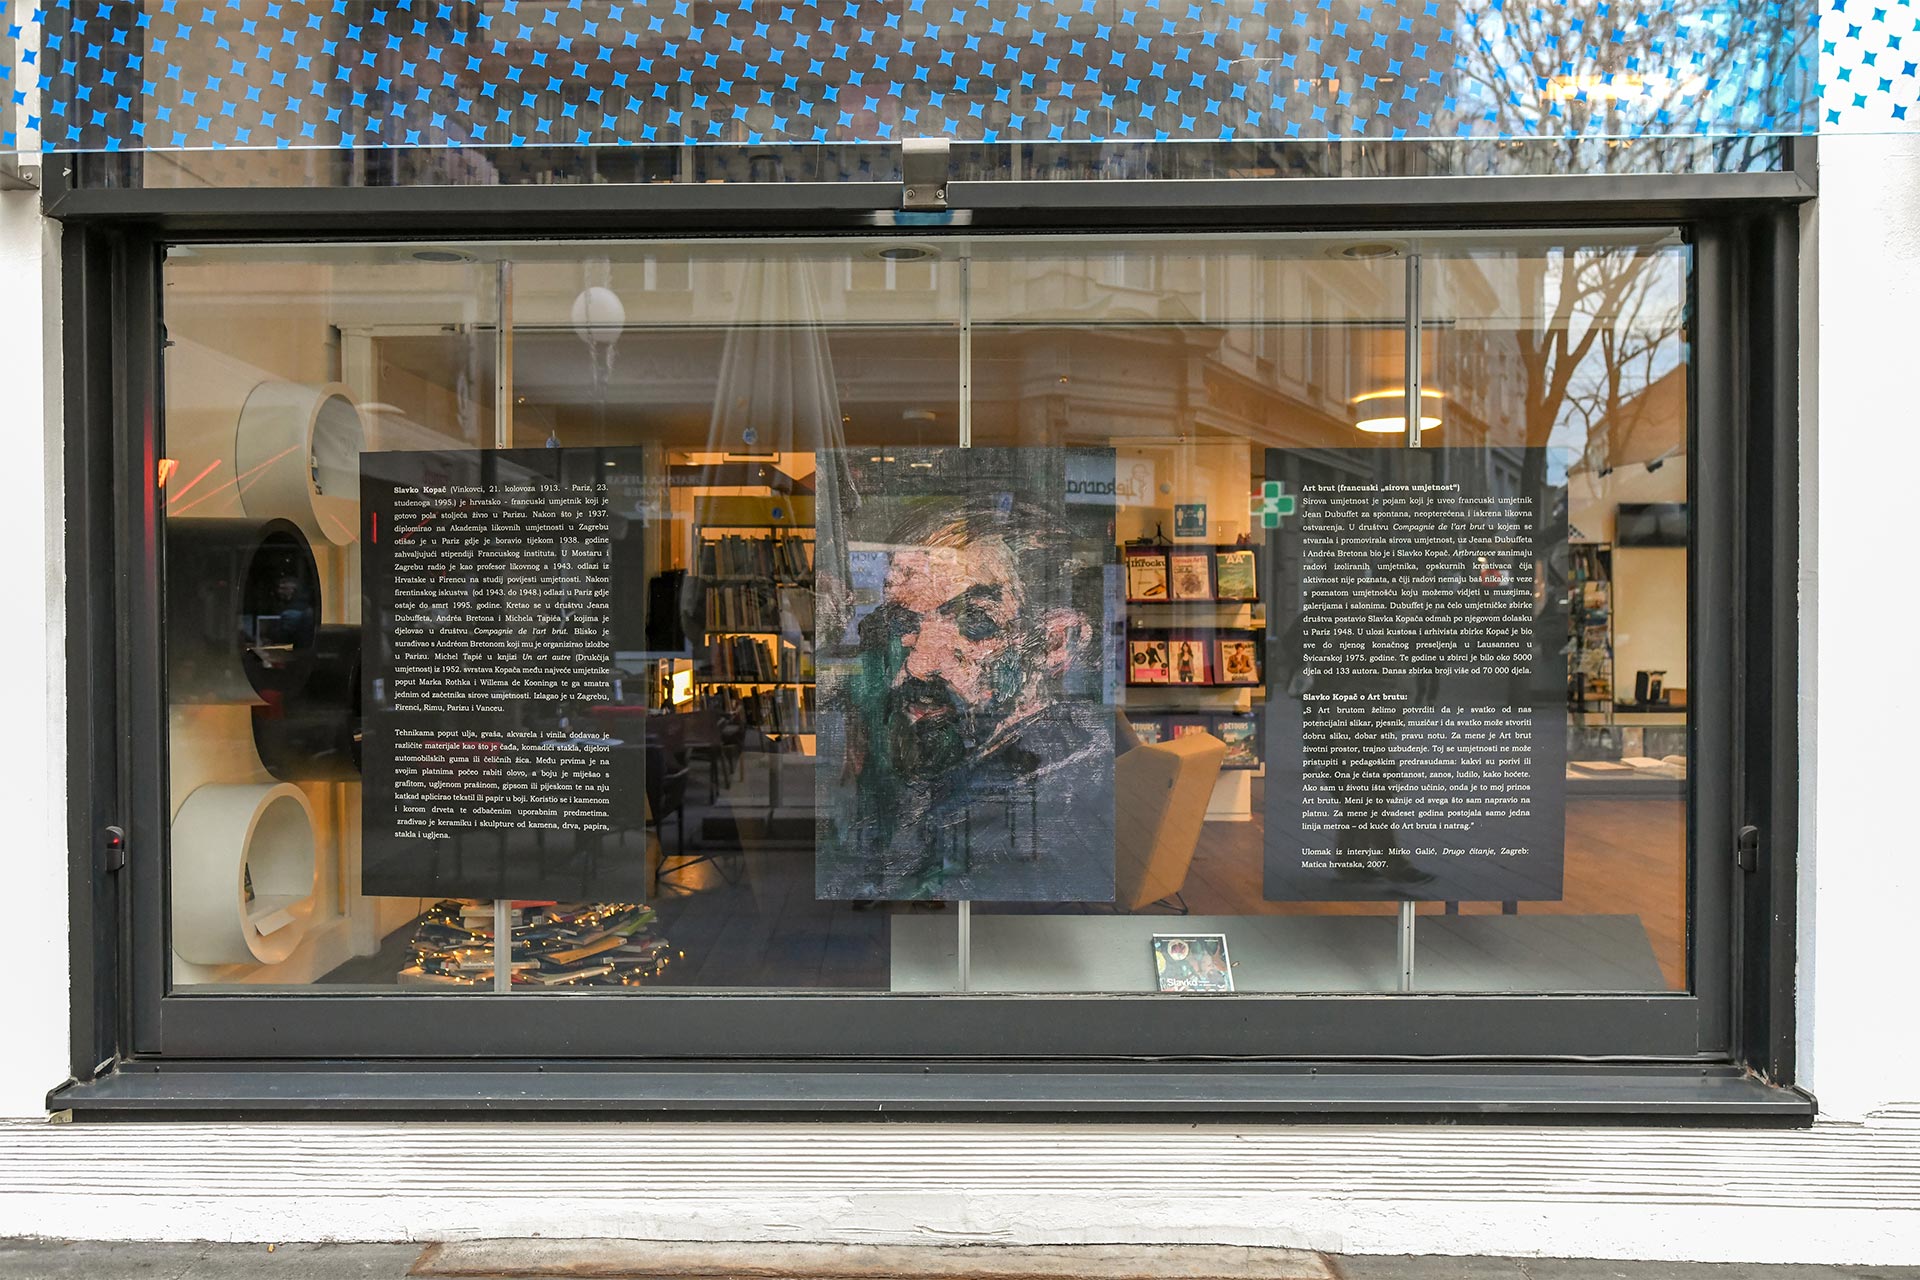 Slavko Kopač (Vinkovci, 21. kolovoza 1913. - Pariz, 23.
studenoga 1995.) je hrvatsko - francuski umjetnik koji je
gotovo pola stoljeća živio u Parizu. Nakon što je 1937.
diplomirao na Akademija likovnih umjetnosti u Zagrebu
otišao je u Pariz gdje je boravio tijekom 1938. godine
zahvaljujući stipendiji Francuskog instituta. U Mostaru i
Zagrebu radio je kao profesor likovnog a 1943. odlazi iz
Hrvatske u Firencu na studij povijesti umjetnosti. Nakon
firentinskog iskustva (od 1943. do 1948.) odlazi u Pariz gdje
ostaje do smrt 1995. godine. Kretao se u društvu Jeana
Dubuffeta, Andréa Bretona i Michela Tapiéa s kojima je
djelovao u društvu Compagnie de l'art brut. Blisko je
surađivao s Andréom Bretonom koji mu je organizirao izložbe
u Parizu. Michel Tapié u knjizi Un art autre (Drukčija
umjetnost) iz 1952. svrstava Kopača među najveće umjetnike
poput Marka Rothka i Willema de Kooninga te ga smatra
jednim od začetnika sirove umjetnosti. Izlagao je u Zagrebu,
Firenci, Rimu, Parizu i Vanceu.
Tehnikama poput ulja, gvaša, akvarela i vinila dodavao je
različite materijale kao što je čađa, komadići stakla, dijelovi
automobilskih guma ili čeličnih žica. Među prvima je na
svojim platnima počeo rabiti olovo, a boju je miješao s
grafitom, ugljenom prašinom, gipsom ili pijeskom te na nju
katkad aplicirao tekstil ili papir u boji. Koristio se i kamenom
i korom drveta te odbačenim uporabnim predmetima.
zrađivao je keramiku i skulpture od kamena, drva, papira,
stakla i ugljena.
Art brut (francuski „sirova umjetnost“)
Sirova umjetnost je pojam koji je uveo francuski umjetnik
Jean Dubuffet za spontana, neopterećena i iskrena likovna
ostvarenja. U društvu Compagnie de l'art brut u kojem se
stvarala i promovirala sirova umjetnost, uz Jeana Dubuffeta
i Andréa Bretona bio je i Slavko Kopač. Artbrutovce zanimaju
radovi izoliranih umjetnika, opskurnih kreativaca čija
aktivnost nije poznata, a čiji radovi nemaju baš nikakve veze
s poznatom umjetnošću koju možemo vidjeti u muzejima,
galerijama i salonima. Dubuffet je na čelo umjetničke zbirke
društva postavio Slavka Kopača odmah po njegovom dolasku
u Pariz 1948. U ulozi kustosa i arhivista zbirke Kopač je bio
sve do njenog konačnog preseljenja u Lausanneu u
Švicarskoj 1975. godine. Te godine u zbirci je bilo oko 5000
djela od 133 autora. Danas zbirka broji više od 70 000 djela.
Slavko Kopač o Art brutu:
„S Art brutom želimo potvrditi da je svatko od nas
potencijalni slikar, pjesnik, muzičar i da svatko može stvoriti
dobru sliku, dobar stih, pravu notu. Za mene je Art brut
životni prostor, trajno uzbuđenje. Toj se umjetnosti ne može
pristupiti s pedagoškim predrasudama: kakvi su porivi ili
poruke. Ona je čista spontanost, zanos, ludilo, kako hoćete.
Ako sam u životu išta vrijedno učinio, onda je to moj prinos
Art brutu. Meni je to važnije od svega što sam napravio na
platnu. Za mene je dvadeset godina postojala samo jedna
linija metroa – od kuće do Art bruta i natrag.“
Ulomak iz intervjua: Mirko Galić, Drugo čitanje, Zagreb:
Matica hrvatska, 2007.
Slavko